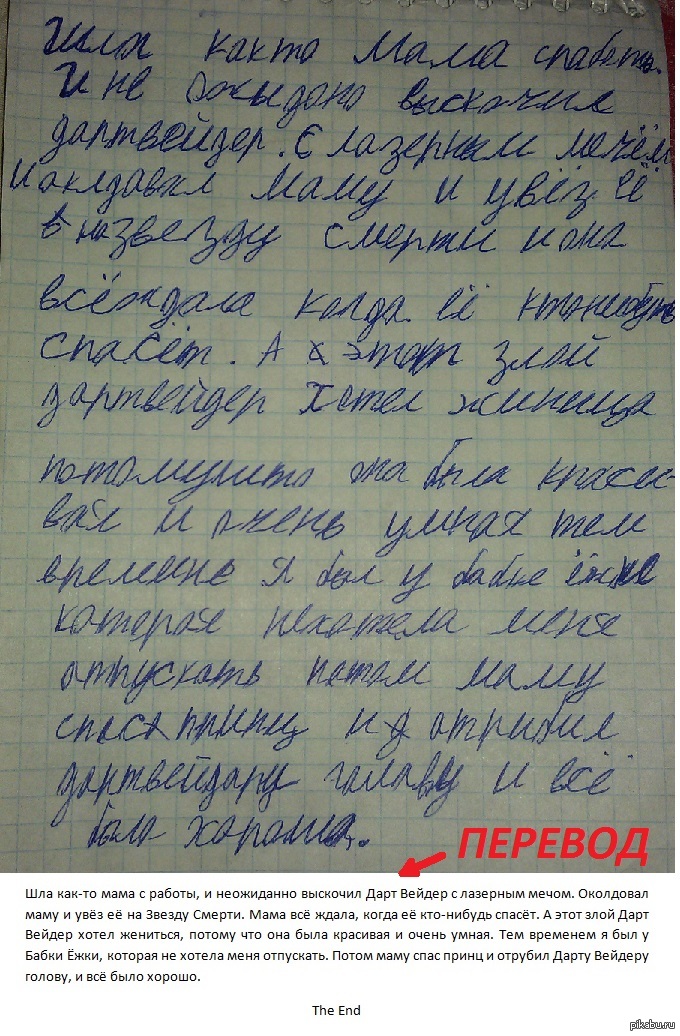 Шла както мама спаботы.
И не ожыдано выскочил
дартвейдер. С лазерным мечём
И аклдавал маму и увёз её
вназвезду смерти и она
всёждала когда её ктонебуть
спасёт. А этот злой
дартвейдер хотел жиница
потомушто она была краси-
вая и очень умная тем
времине я был у бабке ёжке
которая нехотела меня
отпускать потом маму
спас принц и отрибил
дартвейдару галаву и всё
было харашо.
ПЕРЕВОД
Шла как-то мама с работы, и неожиданно выскочил Дарт Вейдер с лазерным мечом. Околдовал
маму и увёз её на Звезду Смерти. Мама всё ждала, когда её кто-нибудь спасёт. А этот злой Дарт
Вейдер хотел жениться, потому что она была красивая и очень умная. Тем временем я был у
Бабки Ёжки, которая не хотела меня отпускать. Потом маму спас принц и отрубил Дарту Вейдеру
голову, и всё было хорошо.
The End
pikabu.ru